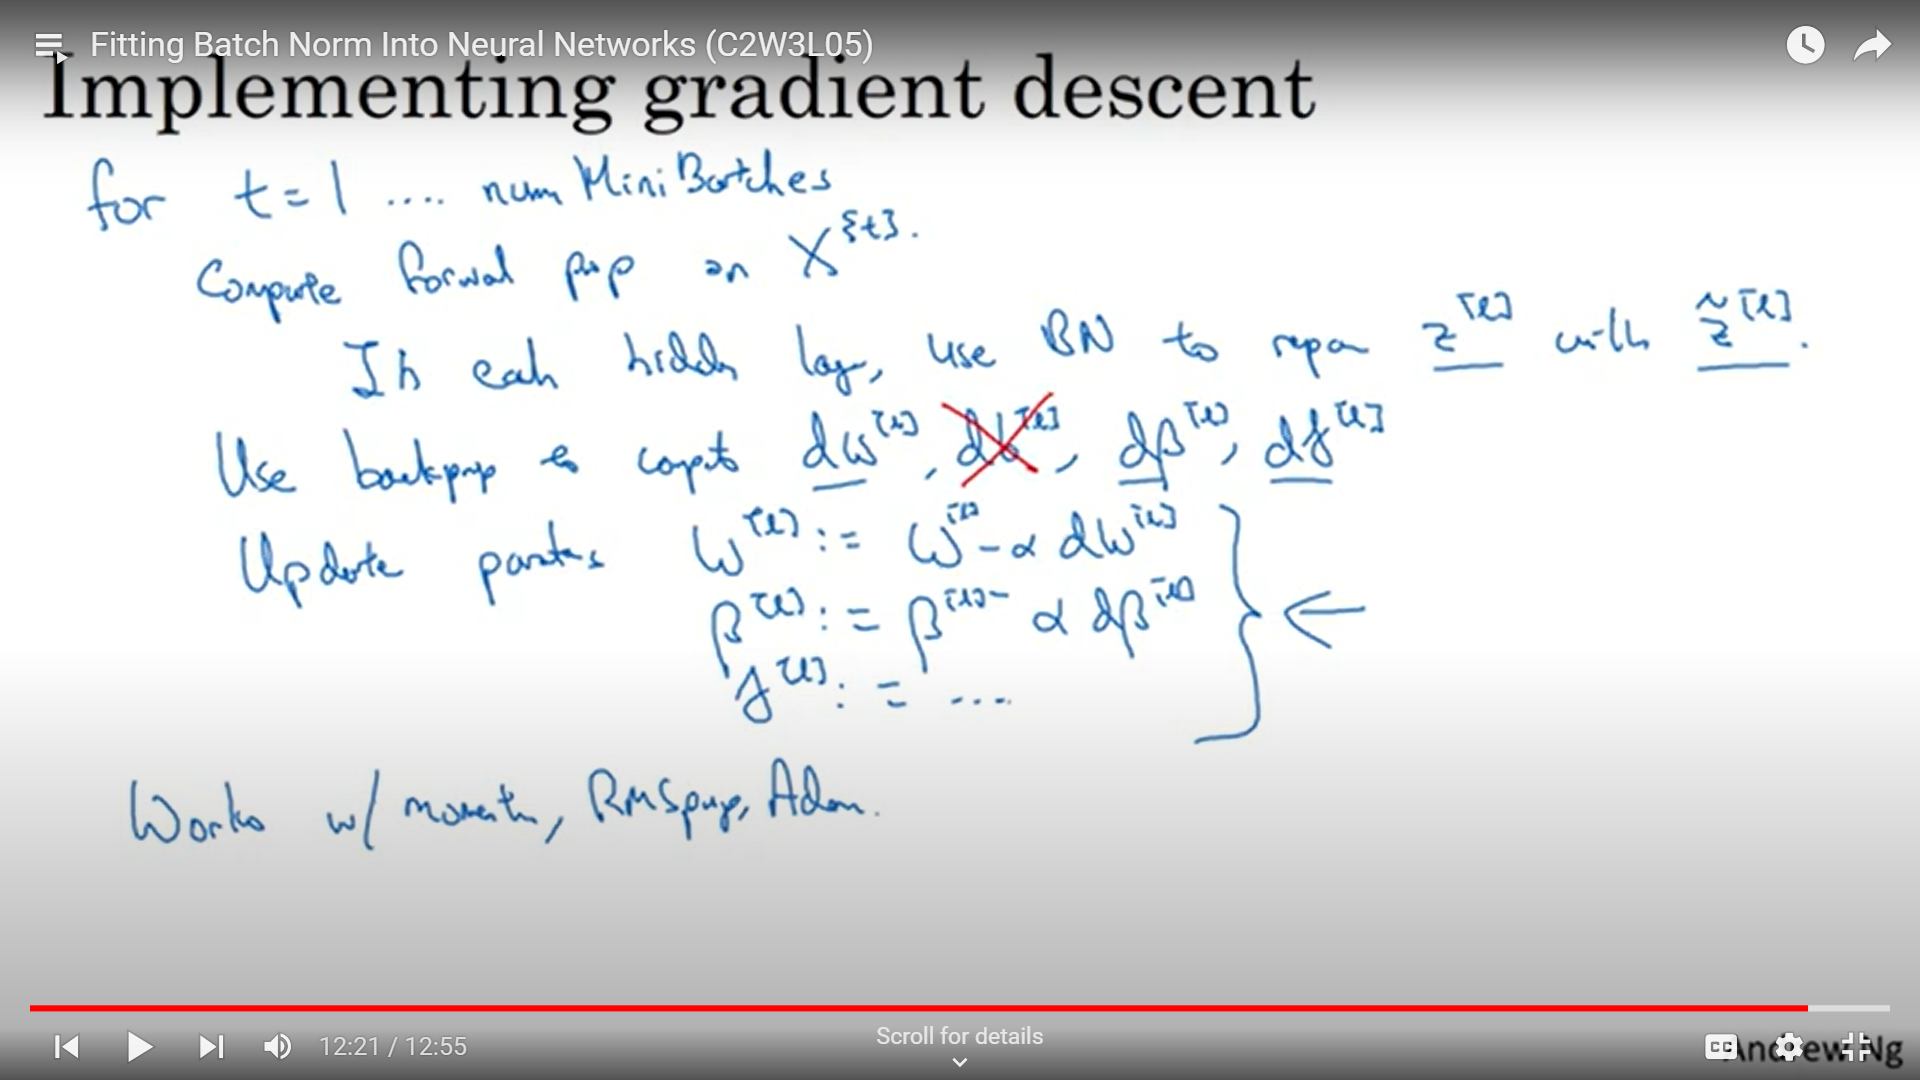 Fitting Batch Norm Into Neural Networks (C2W3L05)
Implementing gradient descent
for t = 1 .... num Mini Batches
Compute forward prop on X^{t}.
In each hidden layer, use BN to replace z^[l] with z̃^[l].
Use backprop to compute dw^[l], db^[l], dβ^[l], dγ^[l]
Update parameters W^[l] := W^[l] - α dW^[l]
β^[l] := β^[l] - α dβ^[l]
γ^[l] := ....
←
Works w/ momentum, RMSprop, Adam.
Scroll for details
12:21 / 12:55
CC
Andrew Ng